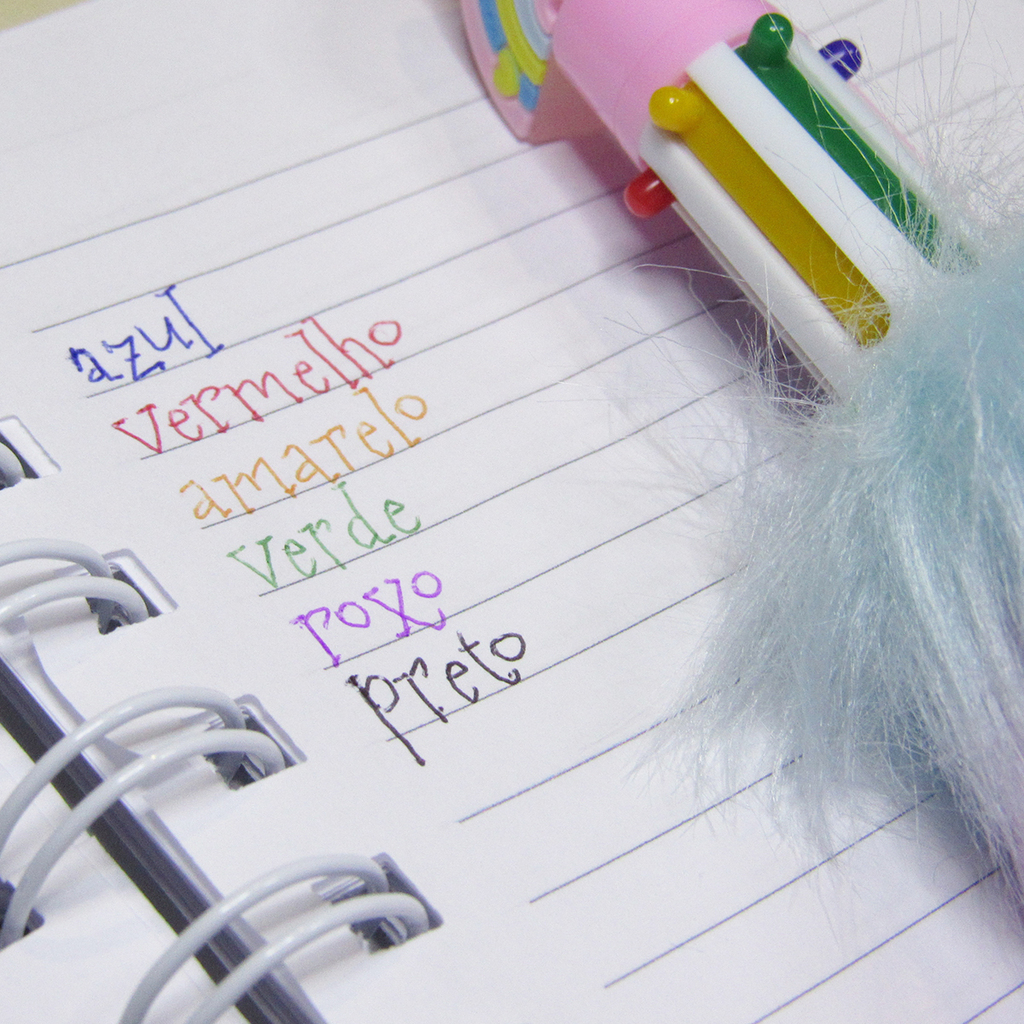 azul
vermelho
amarelo
verde
roxo
preto